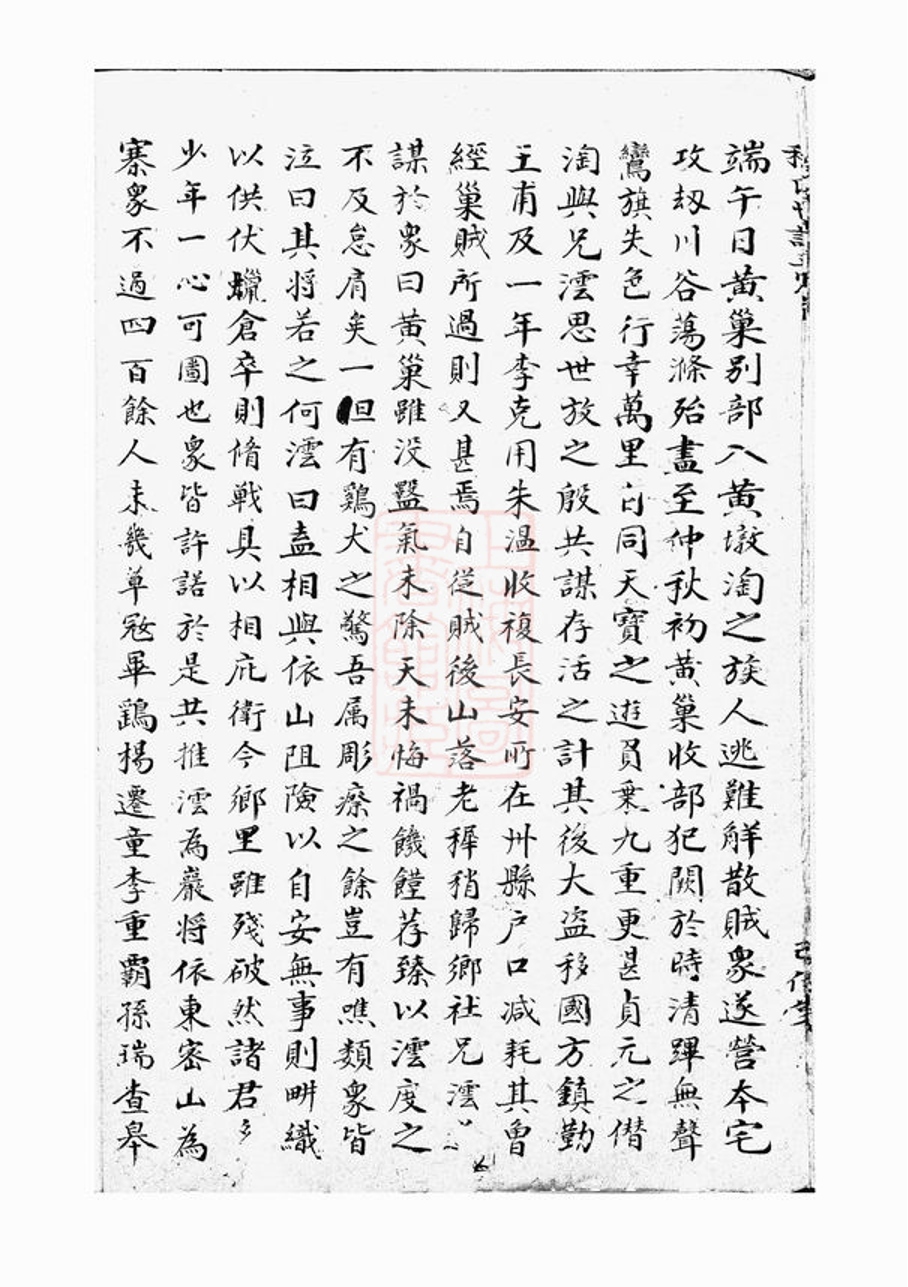 端午日黄巢别部入黄墩淘之族人逃難觧散賊衆遂營本宅
攻刼川谷蕩滌殆盡至仲秋初黄巢收部犯闕於時清蹕無聲
鸞旗失色行幸萬里同天寶之遊貟乗九重更甚貞元之僣
淘與兄澐思世放之殷共謀存活之計其後大盗移國方鎮勤
王甫及一年李克用朱温收複長安所在州縣户口减耗其曽
經巢賊所過則又甚焉自從賊後山落老穉稍歸鄉社兄澐
謀於衆曰黄巢雖没氣未除天未悔禍饑饉荐臻以澐度之
不及怠肩矣一但有鷄犬之驚吾属彫瘵之餘豈有噍類衆皆
泣曰其将若之何澐曰盍相與依山阻險以自安無事則畊織
以供伏蠟倉卒則脩戰具以相庇衛今鄉里雖殘破然諸君多
少年一心可圖也衆皆許諾於是共推澐為巖将依東密山為
寨衆不過四百餘人未幾草寇畢鷂楊遷童李重霸孫瑞查皋